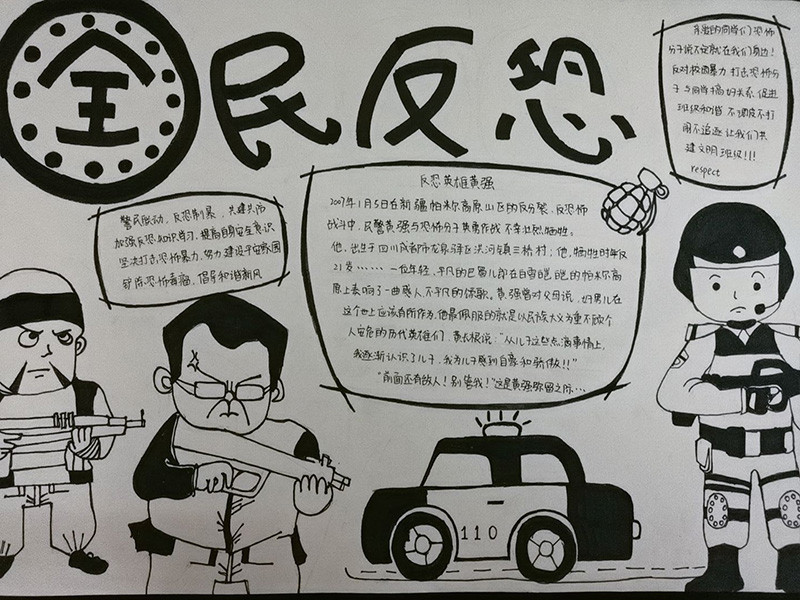 全民反恐
亲爱的同学们恐怖
分子说不定就在我们身边!
反对校园暴力 打击恐怖分
子 与同学搞好关系 促进
班级和谐 不调皮不打
闹不追逐 让我们共
建文明班级!!!
respect
警民联动、反恐制暴、共建共防
加强反恐知识学习、提高自身安全意识
坚决打击恐怖暴力、努力建设平安家园
铲除恐怖毒瘤、倡导和谐新风
反恐英雄黄强
2007年1月5日在新疆帕米尔高原山区的反分裂、反恐怖
战斗中，民警黄强与恐怖分子英勇作战 不幸壮烈牺牲。
他，出生于四川成都市龙泉驿区洪河镇三桥村；他，牺牲时年仅
21岁……一位年轻、平凡的巴蜀儿郎在白雪皑皑的帕米尔高
原上奏响了一曲感人、不平凡的颂歌。黄强曾对父母说，好男儿在
这个世上应该有所作为，他最佩服的就是以民族大义为重不顾个
人安危的历代英雄们，黄长根说："从儿子这些点滴事情上，
我逐渐认识了儿子，我为儿子感到自豪和骄傲!!"
"前面还有敌人！别管我！"这是黄强弥留之际...
110